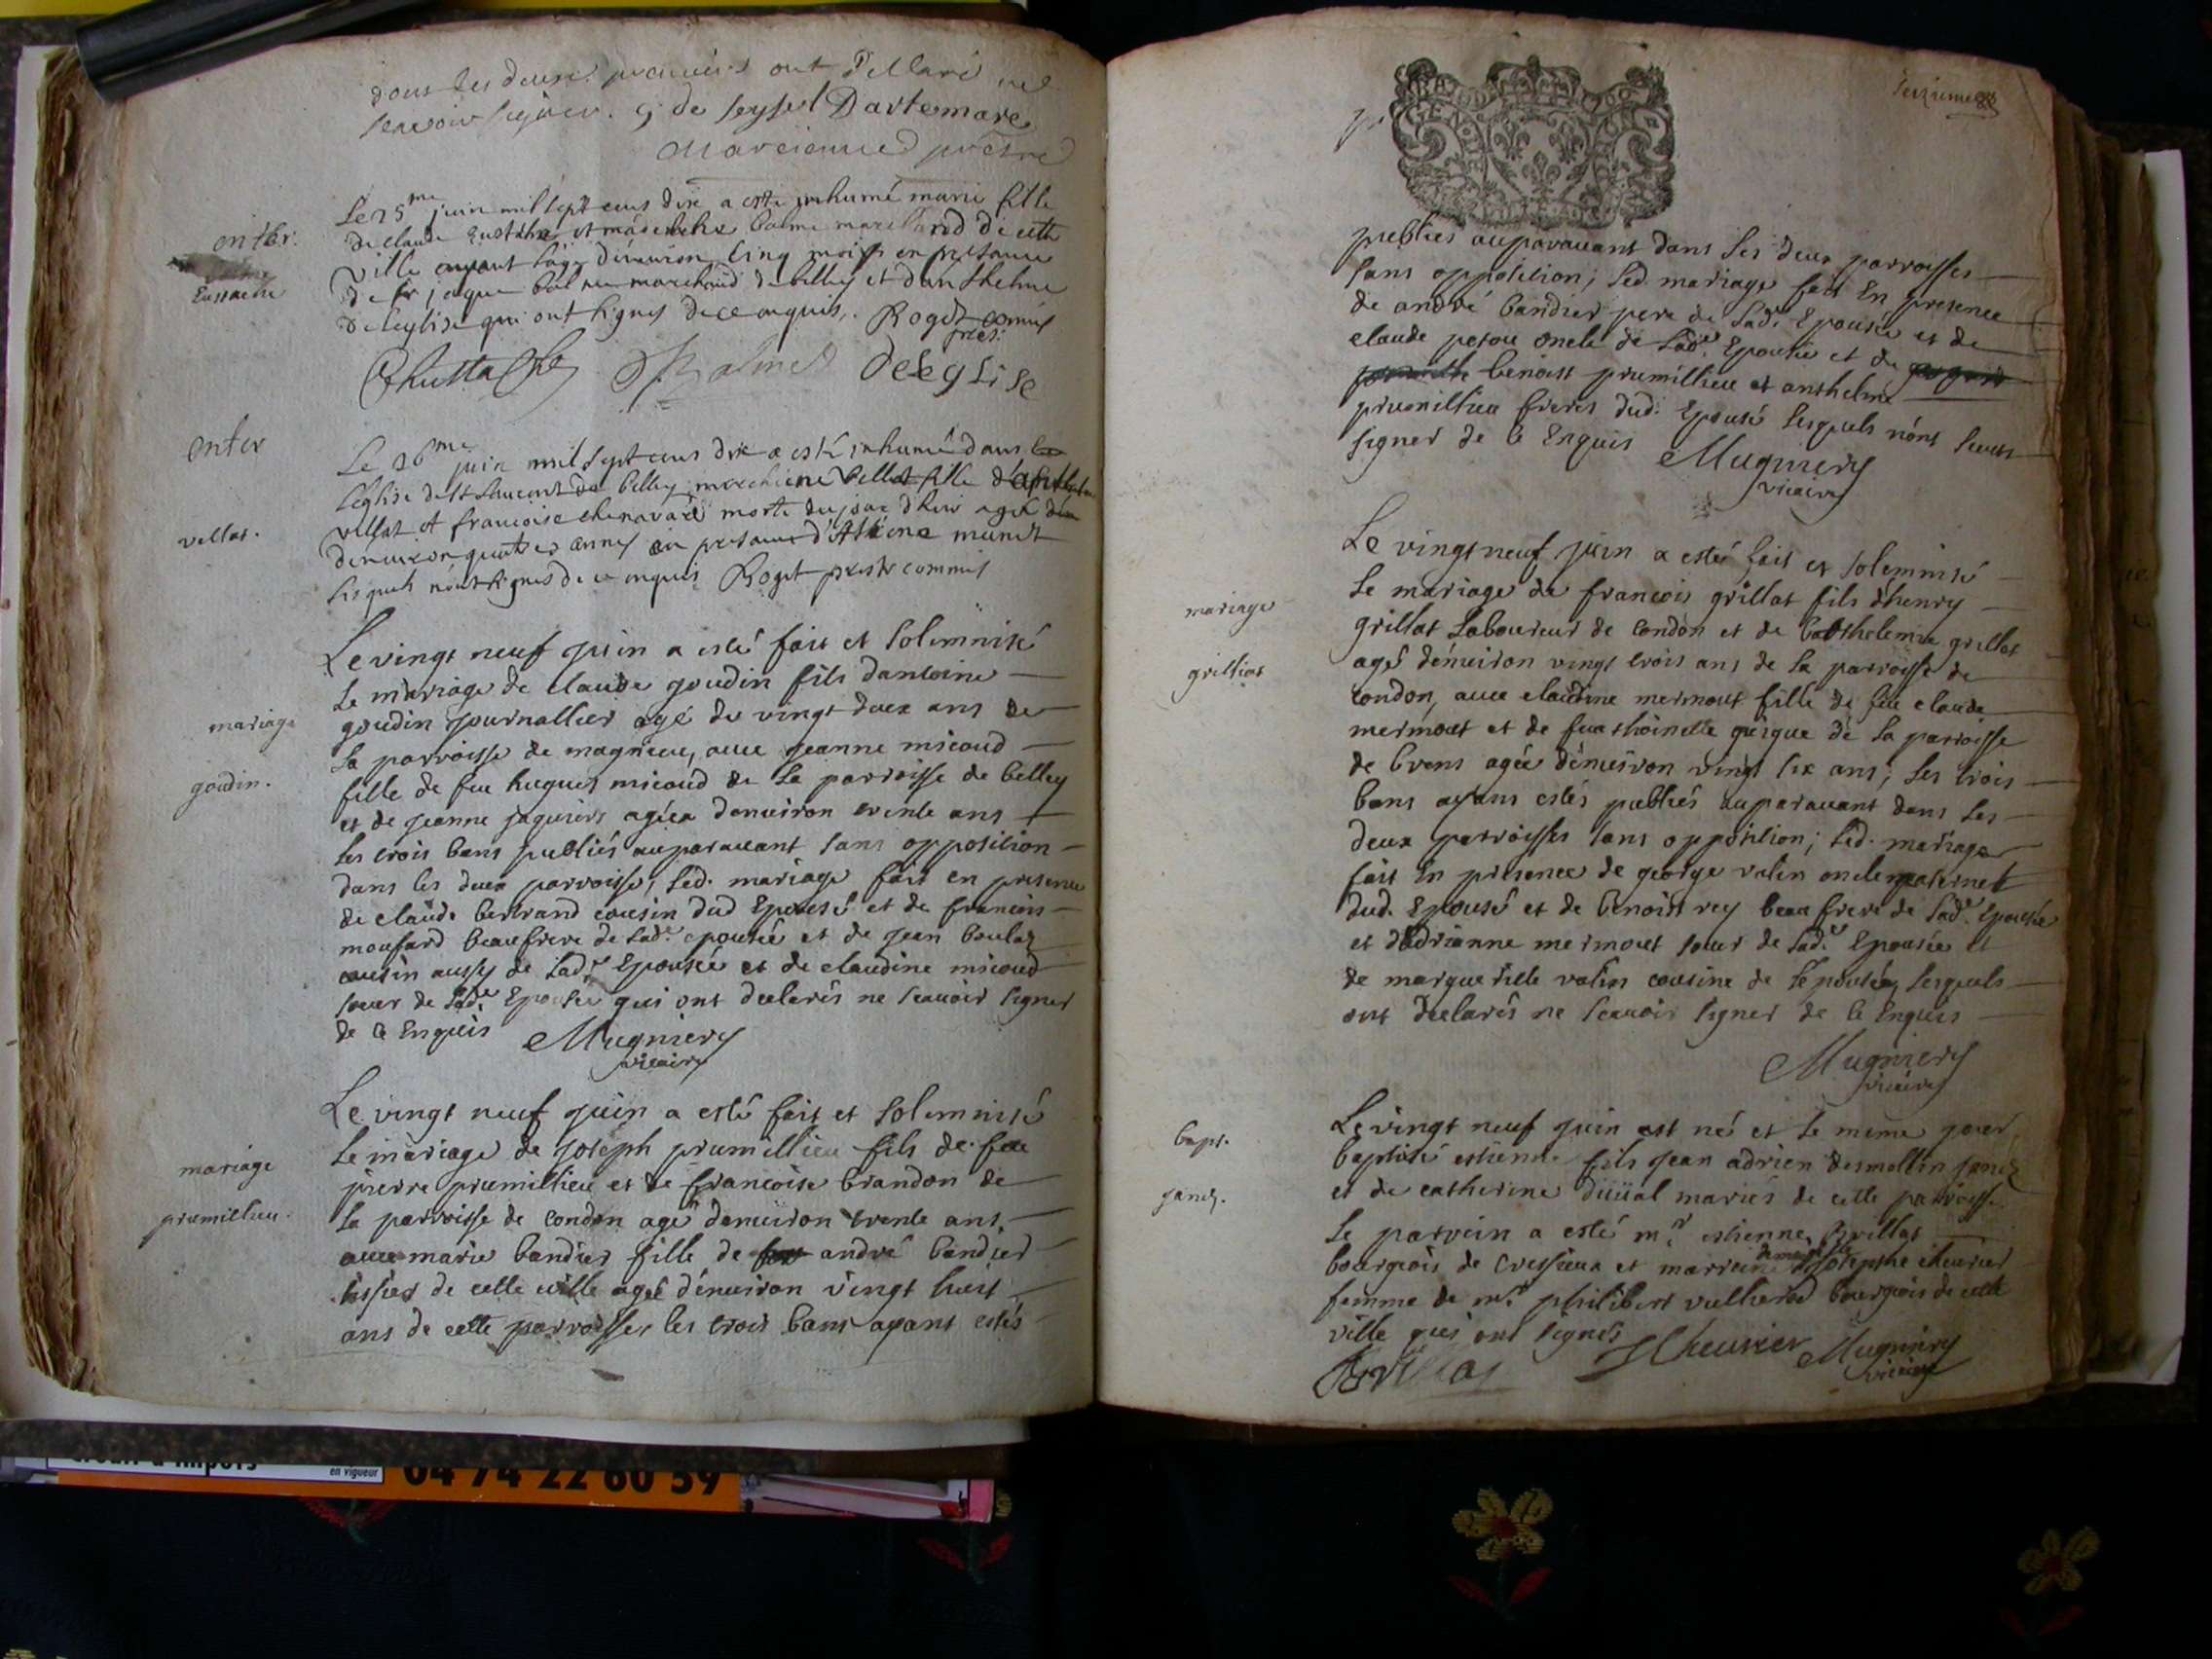 dous les deux premiers ont dellaré ne
scavoir signer. g de seyssel Dartemare
marcienne prestre
enter.
Eustache
Le 25me juin mil sept cens dix a esté inhumé marie fille
de claude Eustache et madelene balme marchand de cette
ville ayant lage denuiron cinq mois en presance
de sr jaque balme marchand de belley et danthelme
deleglise qui ont signes de ce enquis. Roget commis
pres.
Eustache Balme deleglise
enter
vellat.
Le 26me juin mil sept cens dix a esté inhumé dans
leglise de st laurent de belley vellat fille
vellat et francoise chenavard morte du jour dhier agée
denuiron quatres annes en presance munet
lesquels n'ont signes de ce enquis Roget prestre commis
mariage
goudin.
Le vingt neuf juin a esté fait et solemnisé
Le mariage de claude goudin fils dantoine
goudin journallier agé de vingt deux ans de
la parroisse de magnieu, avec jeanne micoud
fille de feu hugues micoud de la parroisse de belley
et de jeanne jaquiers agéea denuiron trente ans
les trois bans publiés auparavant sans opposition
dans les deux parroisses, led. mariage fait en presence
de claude bertrand cousin dud Epousé et de francois
monfard beaufrere de lade. epousée et de jean boulaz
cousin aussy de lade Epousée et de claudine micoud
soeur de lade. Epousée qui ont declarés ne scauoir signer
de ce Enquis Mugniery
vicaire
mariage
prumillieu.
Le vingt neuf juin a esté fait et solemnisé
Le mariage de joseph prumillieu fils de feu
pierre prumillieu et de francoise brandon de
la parroisse de condon agé denuiron trente ans,
avec marie bandier fille de andré bandier
tissier de cette ville agée dénuiron vingt huit
ans de cette parroisse, les trois bans ayans estés
seizieme
GENE
publies auparauant dans les deux parroisses
sans opposition; led. mariage fait En presence
de andré bandier pere de lade. Epousée et de
claude peson oncle de lade. Epousée et de
benoist prumillieu et anthelme
prumillieu freres dud. Epousé lesquels n'ont sceus
signer de ce Enquis Mugniery
vicaire
mariage
grilliat
Le vingt neuf juin a esté fait et solemnisé
le mariage de francois grillat fils dhenry
grillat laboureur de condon et de barthelemie grillat
agé dénuiron vingt trois ans de la parroisse de
condon, avec claudine mermout fille de feu claude
mermout et de feu thoinette guigue de la parroisse
de brens agée dénuiron vingt six ans; les trois
bans ayans estés publiés auparauant dans les
deux parroisses sans opposition; led. mariage
fait En presence de george valin oncle maternel
dud. Epousé et de benoist rey beau frere de lade. Epousée
et dadrianne mermout soeur de lade. Epousée et
de marguerite valin cousine de lepousée, lesquels
ont declarés ne scauoir signer de ce Enquis
Mugniery
vicaire
bapt.
janez.
Le vingt neuf juin est né et le meme jour
baptisé estienne fils jean adrien desmollin janez
et de catherine mariés de cette parroisse.
Le parrein a esté mr. estienne Brillat
bourgeois de Cressieux et marreine demoiselle josepthe cheurier
femme de mr. philibert vullierod bourgeois de cette
ville qui ont signés
Brillat J Cheurier Mugniery
vicaire
en vigueur
04 74 22 60 59